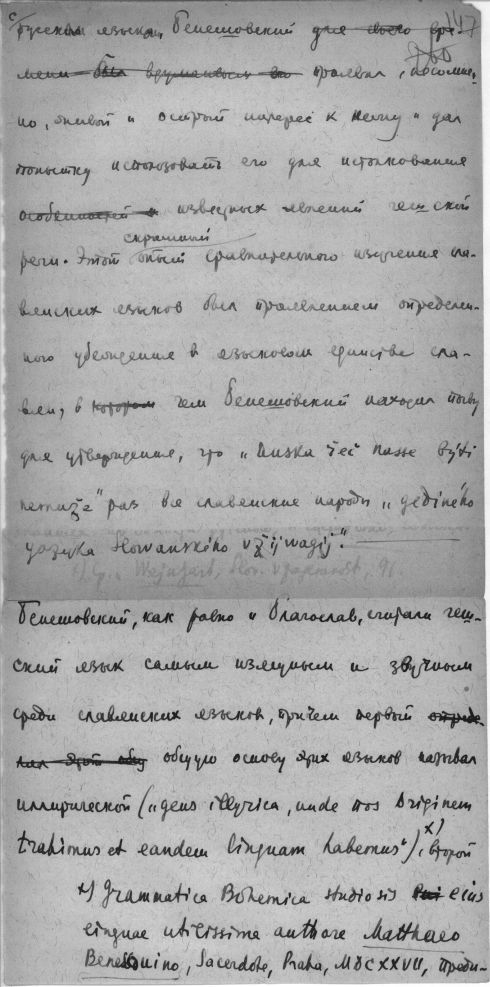 с русским языком, Бенешовский для своего вре- 147
мени был вдумчивым проявил, несомнен-
но, живой и острый интерес к нему и дал
попытку использовать его для истолкования
особенностей и известных явлений чешской
скромный
речи. Этот опыт сравнительного изучения сла-
вянских языков был проявлением определен-
ного убеждения в языковом единстве сла-
вян, в котором чем Бенешовский находил почву
для утверждения, что „Auzka řeč nasse býti
nemuže" раз все славянские народы „gediného
yazyka Slowanského vžijwagij."
Бенешовский, как равно и Благослав, считали чеш-
ский язык самым изящным и звучным
среди славянских языков, причем первый опреде-
лял этой общ общую основу этих языков называл
иллирической („gens illyrica, unde nos originem
trahimus et eandem linguam habemus")x), второй
x) Grammatica Bohemica studiosis eius
linguae utilissima authore Matthaeo
Benessouino, Sacerdote, Praha, MDCXXVII, преди-